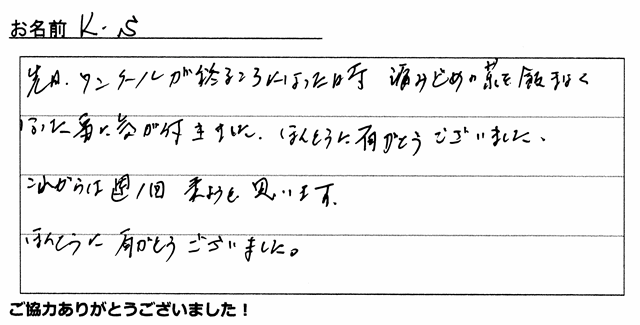 お名前 K.S
先日、ワンクールが終るころになった時 痛みどめの薬を飲まなく
なった事に気が付きました。ほんとうに有がとうございました、
これからは週1回 来ようと思います。
ほんとうに 有がとうございました。
ご協力ありがとうございました！